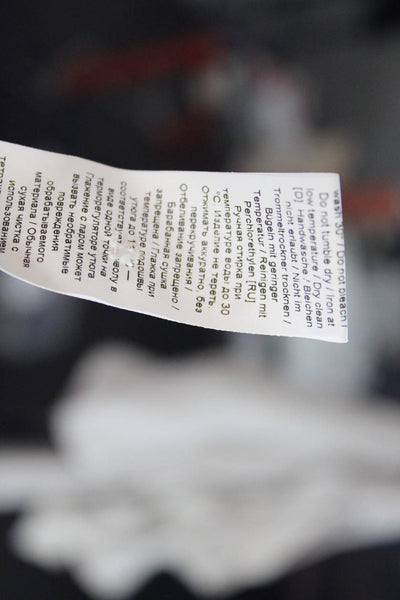 wash 30°/ Do not bleach /
Do not tumble dry / Iron at
low temperature / Dry clean
[D] Handwäsche / Bleichen
nicht erlaubt / Nicht im
Trommeltrockner trocknen /
Bügeln mit geringer
Temperatur / Reinigen mit
Perchlorethylen [RU]
Ручная стирка при
температуре воды до 30
°C. Изделие не тереть.
Отжимать аккуратно, без
перекручивания /
Отбеливание запрещено /
Барабанная сушка
запрещена / Глажка при
температуре подошвы
утюга до 11
виде одной точки на
терморегуляторе утюга
Глажение с паром может
вызвать необратимые
повреждения
обрабатываемого
материала / Обычная
сухая чистка с
использованием